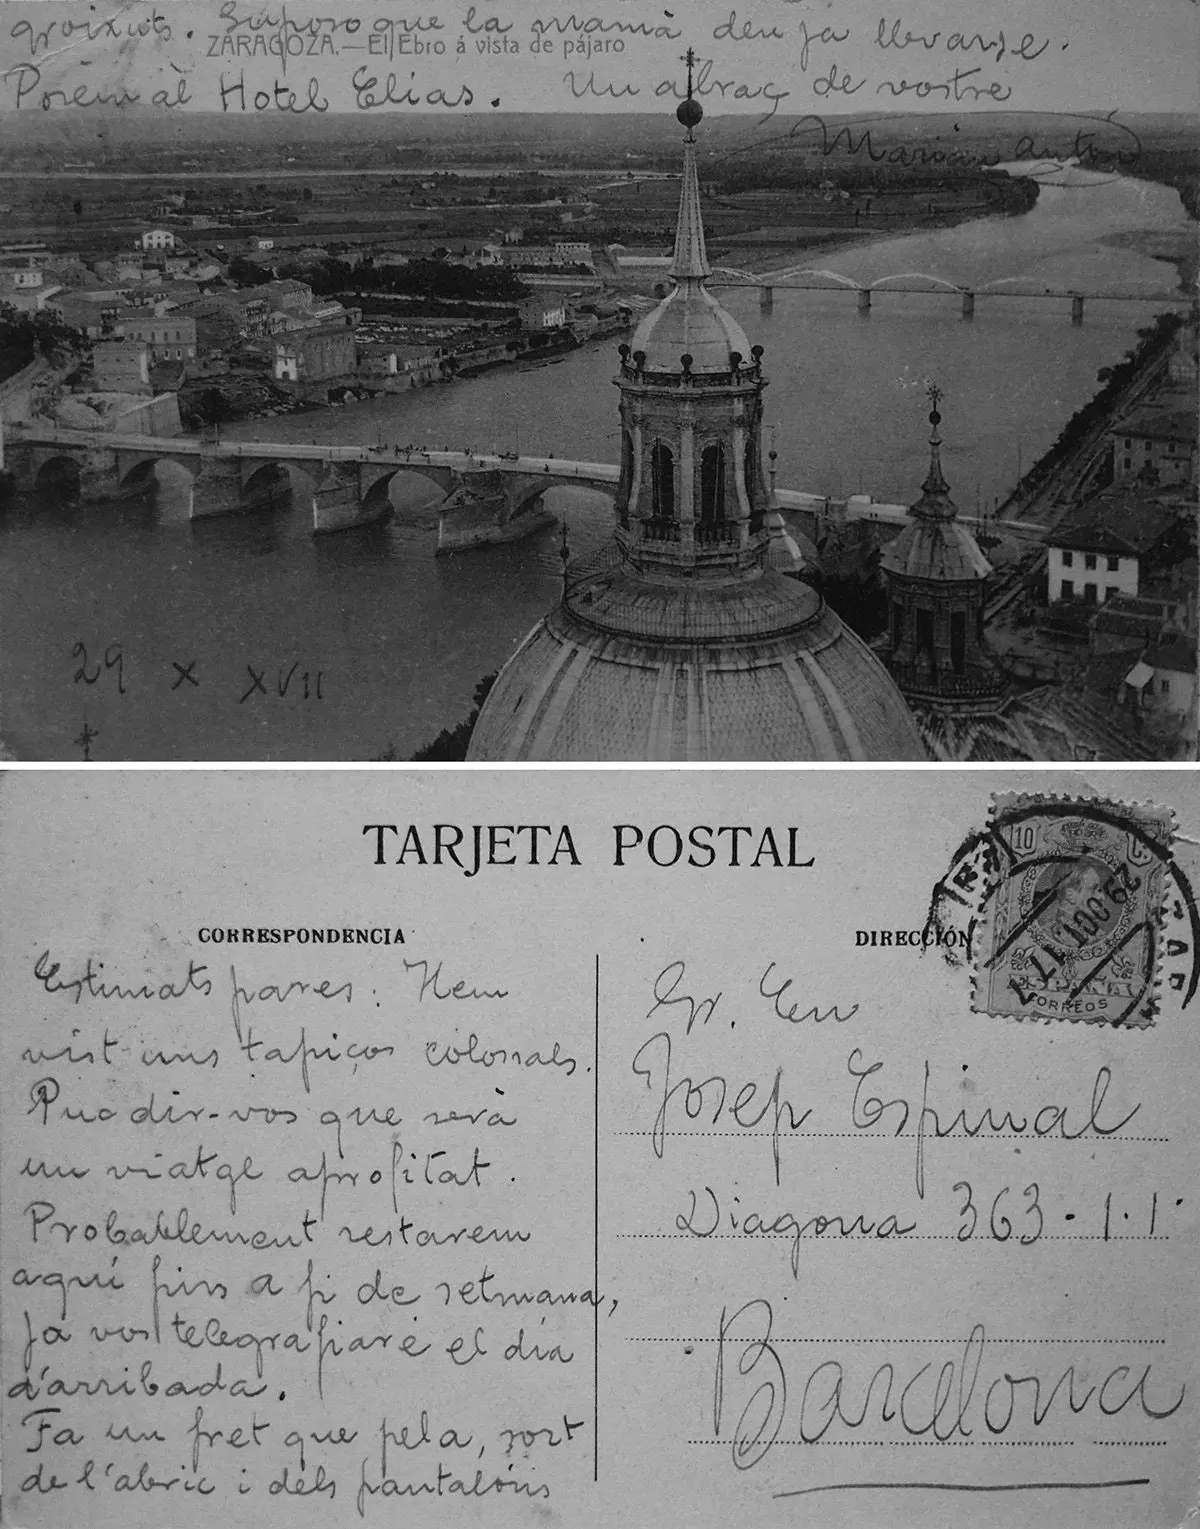 groixuts. Suposo que la mamà deu ja llevarse.
ZARAGOZA.—El Ebro á vista de pájaro
Posèm al Hotel Elias. Un abraç de vostre
Marian Anton
29 X XVII
TARJETA POSTAL
CORRESPONDENCIA
DIRECCIÓN
10 C.
29.OCT.17
ESPAÑA
CORREOS
Estimats pares: Hem
vist uns tapiços colossals.
Puc dir-vos que serà
un viatge aprofitat.
Probablement restarem
aquí fins a fi de setmana,
ja vos telegrafiaré el día
d'arribada.
Fa un fret que pela, sort
de l'abric i dels pantalóns
Sr. En
Josep Espinal
Diagonal 363-1.1.
Barcelona